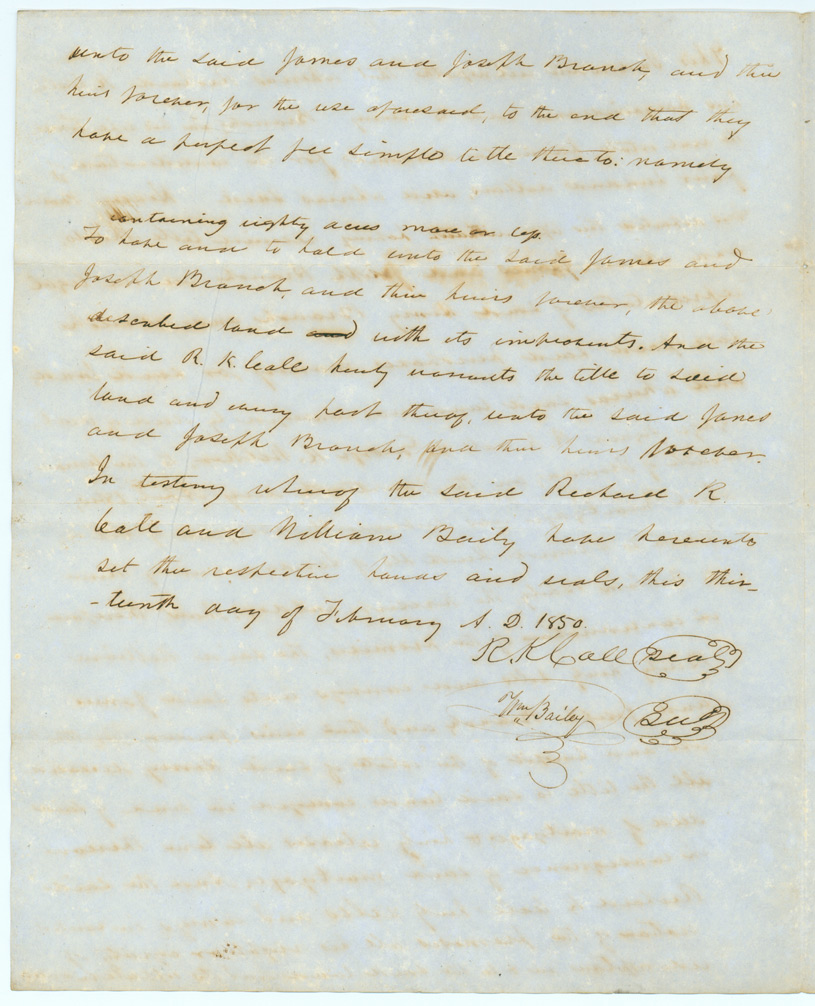 unto the said James and Joseph Branch, and their
heirs forever, for the use aforesaid, to the end that they
have a perfect fee simple title thereto: namely
containing eighty acres more or less.
To have and to hold unto the said James and
Joseph Branch, and their heirs forever, the above
described land and with its improvements. And the
said R. K. Call hereby warrants the title to said
land and every part thereof, unto the said James
and Joseph Branch, and their heirs forever.
In testimony whereof the said Richard K.
Call and William Baily have hereunto
set their respective hands and seals, this thir-
-teenth day of February A. D. 1850.
R K Call Seal
Wm Bailey Seal